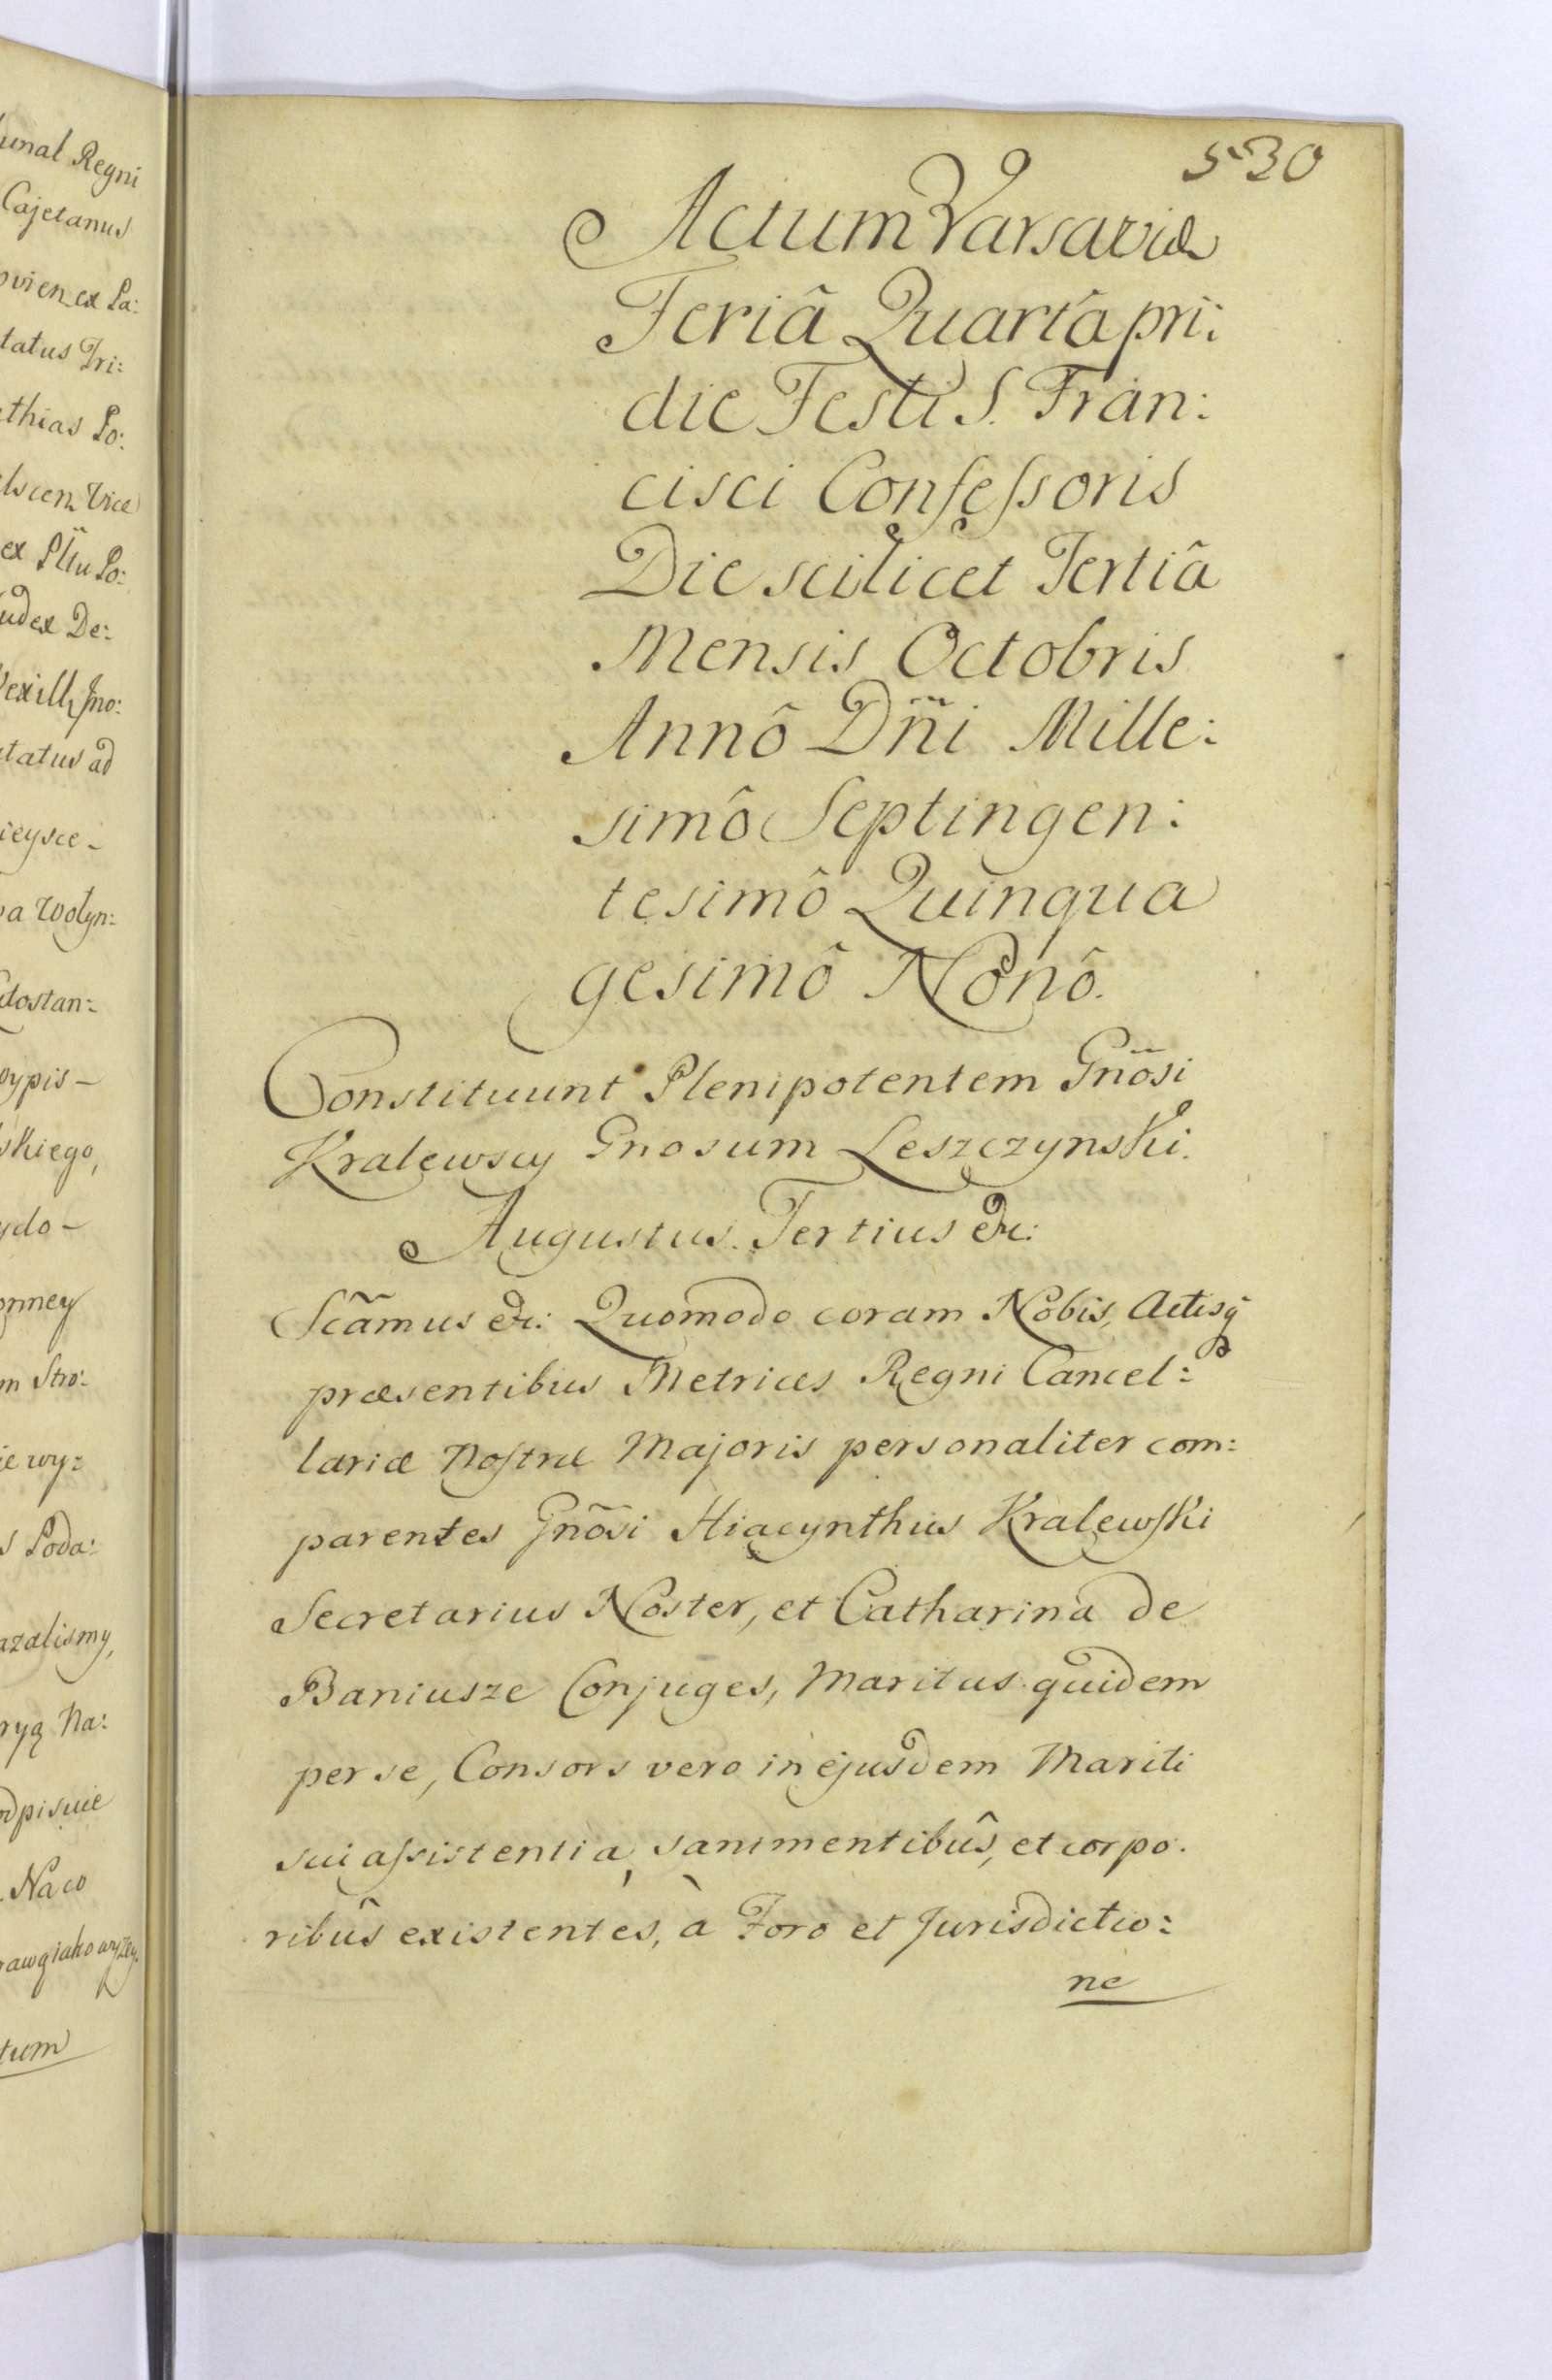 unal Regni
Cajetanus
ovien ex Pa:
tatus Tri:
thias Po:
lscen. Vice
ex Pltu Po:
udex De:
Vexill Ino:
tatus ad
ieysce-
a Wołyn:
dostan=
wypis-
skiego,
ydo-
onney
m Stro:
ie wy=
s Poda:
azalismy,
ryą Na:
dpisuie
Naco
tum
530
Actum Varsaviæ
Feriâ Quartâ pri:
die Festi S. Fran:
cisci Confeſsoris
Die scilicet Tertiâ
Mensis Octobris
Annô Dñi Mille:
simô Septingen:
tesimô Quinqua
gesimô Nonô.
Constituunt Plenipotentem Gnõsi
Kralewscy Gnosum Leszczynski.
Augustus Tertius &c:
Scãmus &c: Quomodo coram Nobis, Actisq̃
præsentibus Metrices Regni Cancel=
lariæ Noſtræ Majoris personaliter com:
parentes Gnõsi Hiacynthus Kralewſki
Secretarius Noster, et Catharina de
Baniusze Conjuges, Maritus quidem
per se, Consors vero in ejusdem Mariti
sui aſsistentia, sani mentibûs, et corpo.
ribûs existentes, à Foro et Jurisdictio:
ne